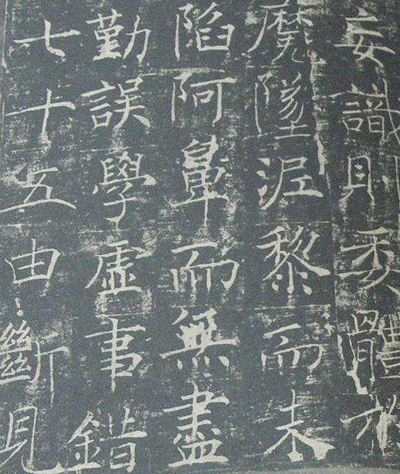 妄識則委體於
魔墜泥黎而未
陷阿鼻而無盡
勤誤學虛事錯
七十五由斷見